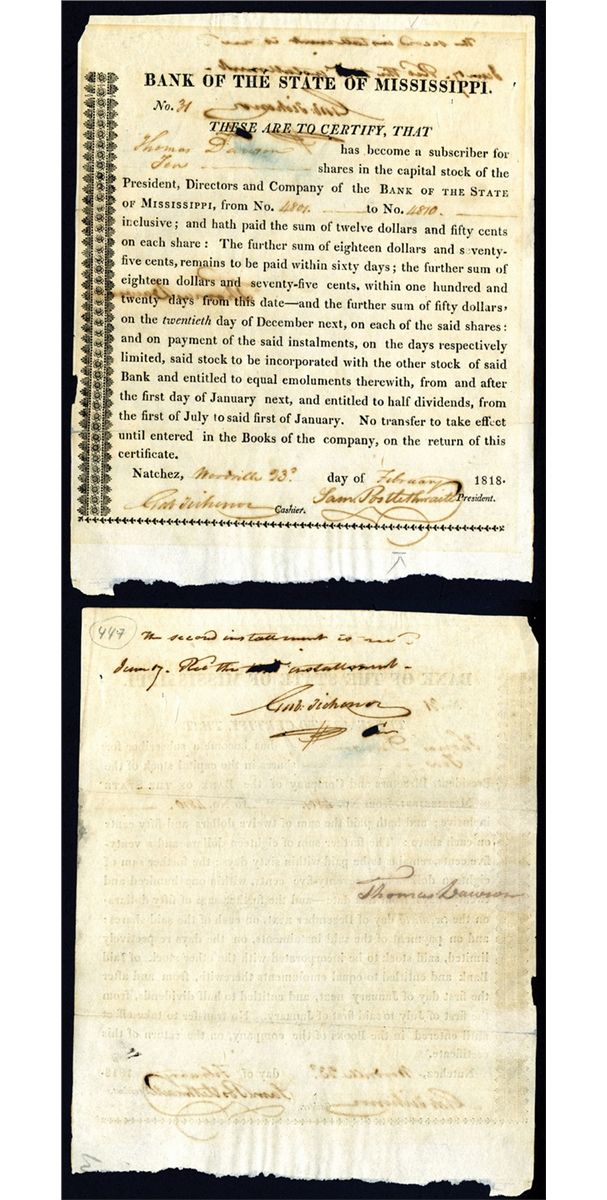 BANK OF THE STATE OF MISSISSIPPI.
No. 31
THESE ARE TO CERTIFY, THAT
Thomas Dawson has become a subscriber for
Ten shares in the capital stock of the
President, Directors and Company of the BANK OF THE STATE
OF MISSISSIPPI, from No. 4801. to No. 4810.
inclusive; and hath paid the sum of twelve dollars and fifty cents
on each share: The further sum of eighteen dollars and seventy-
five cents, remains to be paid within sixty days; the further sum of
eighteen dollars and seventy-five cents, within one hundred and
twenty days from this date—and the further sum of fifty dollars,
on the twentieth day of December next, on each of the said shares:
and on payment of the said instalments, on the days respectively
limited, said stock to be incorporated with the other stock of said
Bank and entitled to equal emoluments therewith, from and after
the first day of January next, and entitled to half dividends, from
the first of July to said first of January. No transfer to take effect
until entered in the Books of the company, on the return of this
certificate.
Natchez, Woodville 23d day of February 1818.
Gab Tichenor Cashier. Saml Postlethwaite President.
447
The second installment is
the installment
Gab. Tichenor
Thomas Dawson